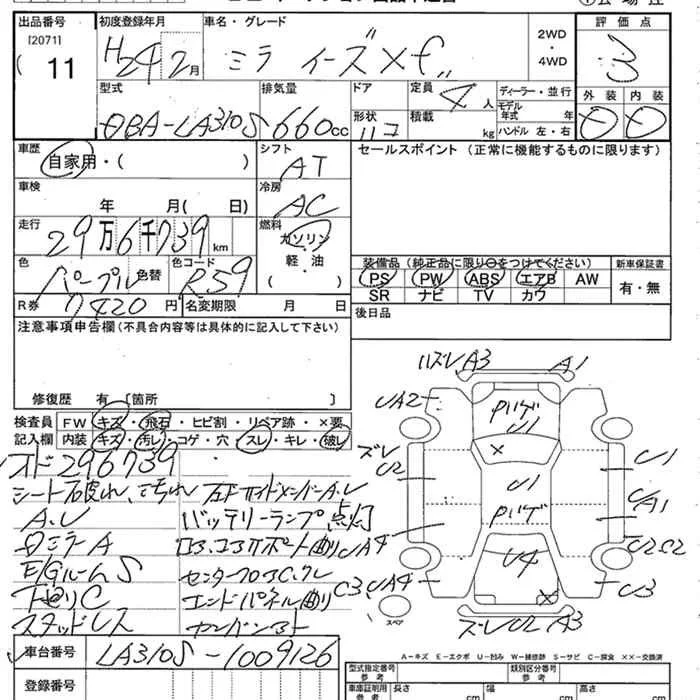 出品番号
[20711]
( 11
初度登録年月
H24 2月
車名・グレード
ミラ イース" X f"
2WD
・
4WD
評価点
3
外装 内装
型式
DBA-LA310S
排気量
660cc
ドア
形状
定員
4人
積載
kg
ディーラー・並行
モデル
年式 年
ハンドル 左・右
車歴
自家用・( )
シフト
AT
セールスポイント (正常に機能するものに限ります)
車検
年 月( 日)
冷房
AC
走行
29万6千739km
燃料
ガソリン
軽・油
( )
色
パープル 色替
色コード
R59
装備品(純正品に限り○をつけてください)
PS PW ABS エアB AW
SR ナビ TV カワ
新車保証書
有・無
R券
7420円
名変期限 月 日
後日品
注意事項申告欄(不具合内容等は具体的に記入して下さい)
修復歴 有 [箇所 ]
検査員
記入欄
FW キズ・飛石・ヒビ割・リペア跡・×要
内装 キズ・汚レ・コゲ・穴・スレ・キレ・破レ
オド296739
シート破れ、こげれ
A.U
バッテリーランプ点灯
ロミラーA
E/GルームS
下廻りC
エンドパネル曲り
スタッドレス
ハズレ A3 A1
UA2
U1
ズレ
U2
U1
U1
A1
U4
U2S2
UA4
C3,UA4
U3
ズレ U2 A3
スペア
車台番号
LA310S-1009126
登録番号
A-キズ E-エクボ U-凹み W-補修跡 S-サビ C-腐食 ××-交換済
型式指定番号
参考
類別区分番号
参考
車庫証明用
参考
長さ cm
幅 cm
高さ cm